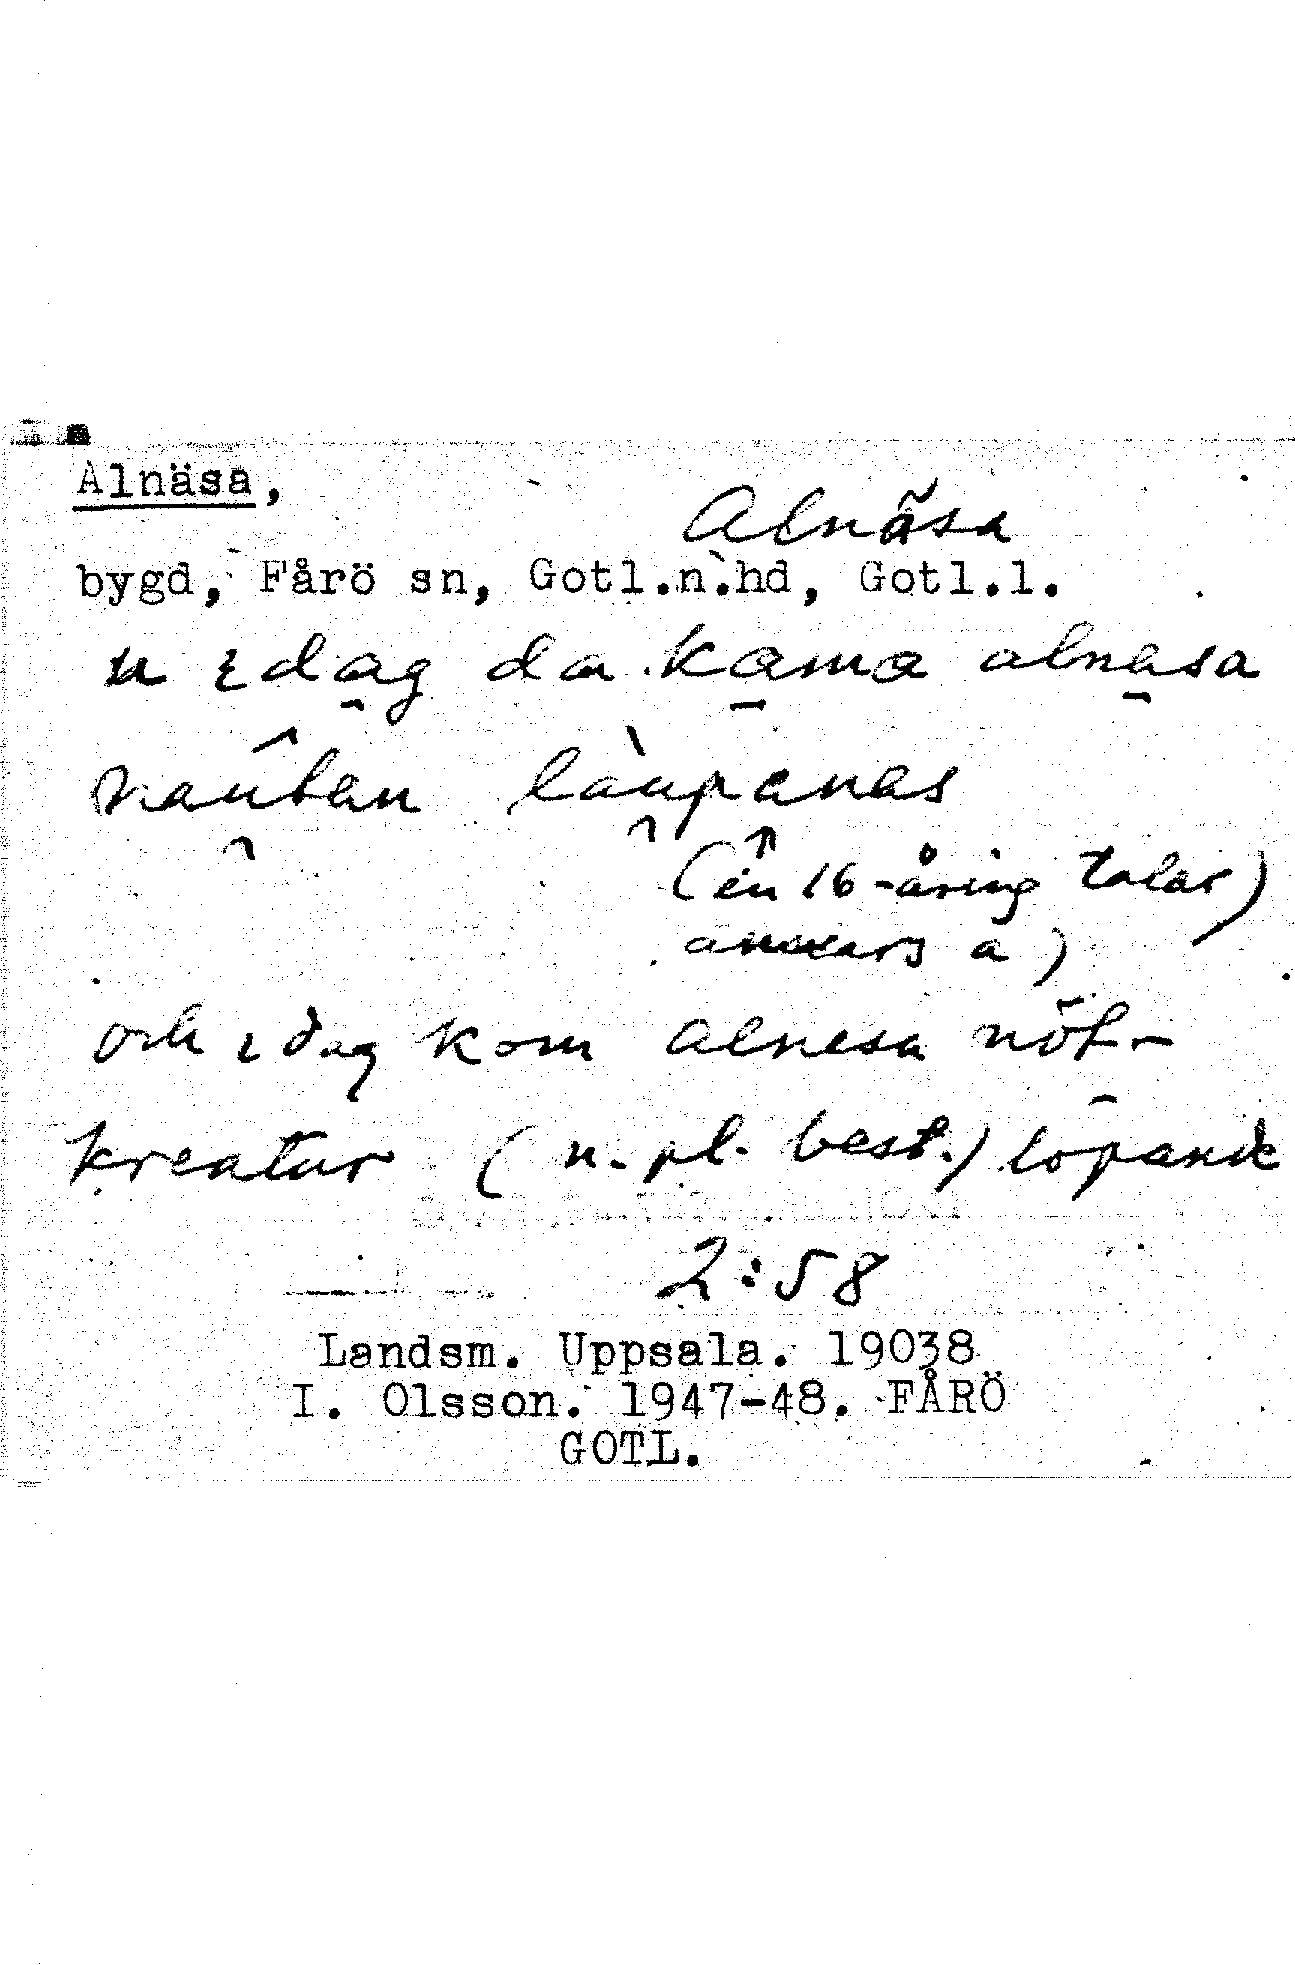 Alnäsa,
Alnäsa
bygd, Fårö sn, Gotl.n.hd, Gotl.l.
u idag da kama alnäsa
nautan làupanes
(en 16-åring talar)
annars a)
och idag kom alnesa nöt-
kreatur (n. pl. best.) löpande
2:58
Landsm. Uppsala. 19038
I. Olsson. 1947-48. FÅRÖ
GOTL.